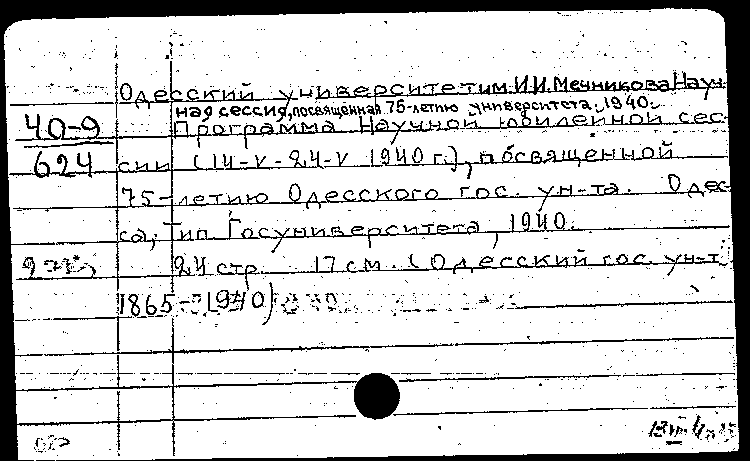 Одесский университет им. И.И. Мечникова Науч
ная сессия, посвященная 75-летию университета, 1940.
40-9
Программа Научной юбилейной сес-
624
сии (14-V - 24-V 1940 г.), посвященной
75-летию Одесского гос. ун-та. Одес-
са, Тип Госуниверситета, 1940.
24 стр 17 см. (Одесский гос. ун-т
1865-1940)